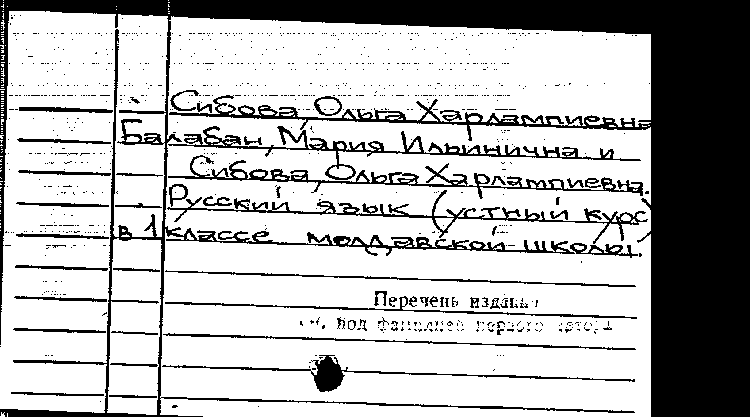 Сибова, Ольга Харлампиевна
Балабан, Мария Ильинична и
Сибова, Ольга Харлампиевна.
Русский язык (устный курс)
в 1 классе молдавской школы.
Перечень издан
под фамилией первого автора